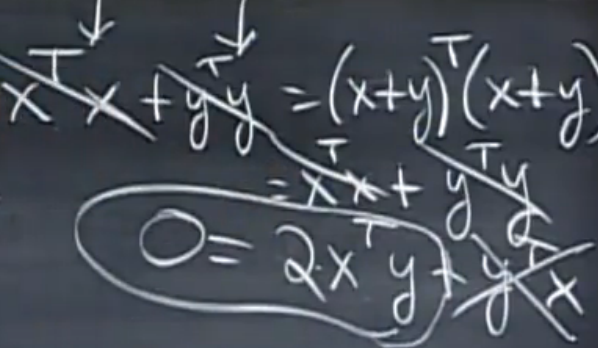 x^T x + y^T y = (x+y)^T (x+y)
= x^T x + y^T y
0 = 2x^T y + y^T x